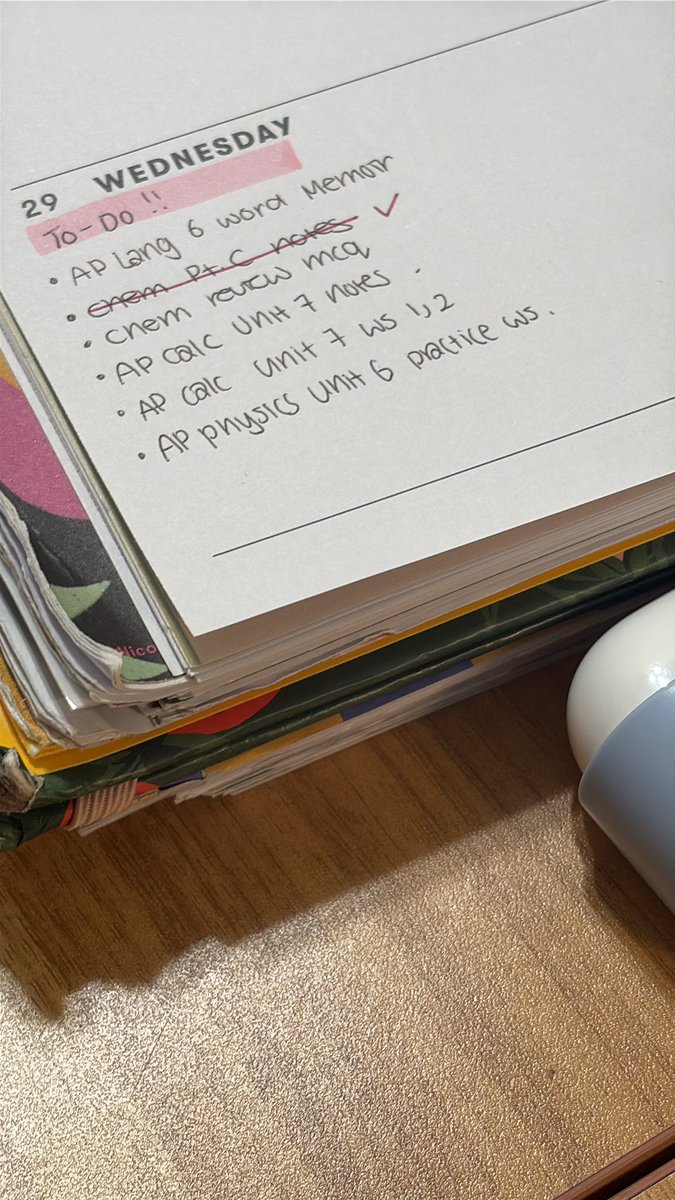 29 WEDNESDAY
To-Do !!
• AP Lang 6 word Memoir
• chem Pt. C notes ✓
• chem review mcq
• AP calc Unit 7 notes .
• AP calc Unit 7 ws 1, 2
• AP physics Unit 6 practice ws .
Nico